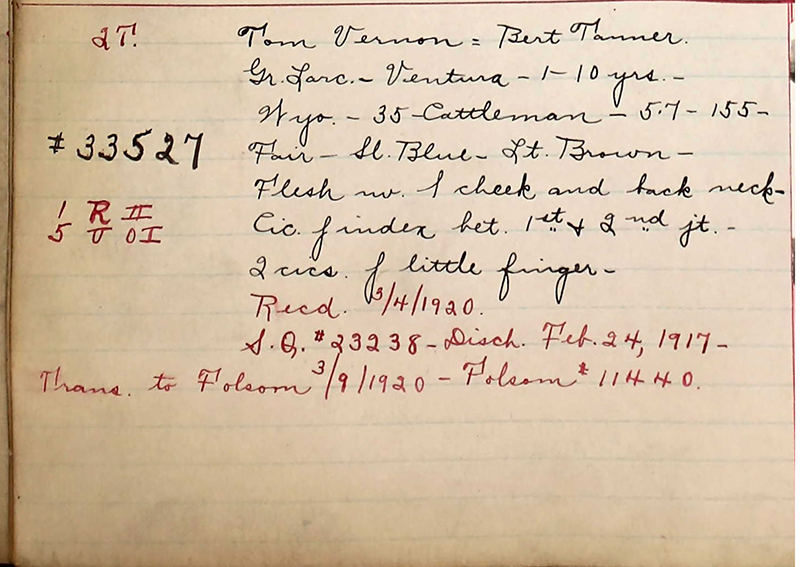 2T. Tom Vernon = Bert Tanner.
Gr. Larc. - Ventura - 1-10 yrs. -
Wyo. - 35 - Cattleman - 5.7 - 155 -
#33527 Fair - Sl. Blue - Lt. Brown -
Flesh nv. f cheek and back neck -
1 R II Cic. f index bet. 1st & 2nd jt. -
5 U OI
2 cics. f little finger -
Recd. 3/4/1920.
S.Q. #23238 - Disch. Feb. 24, 1917 -
Trans. to Folsom 3/9/1920 - Folsom # 11440.